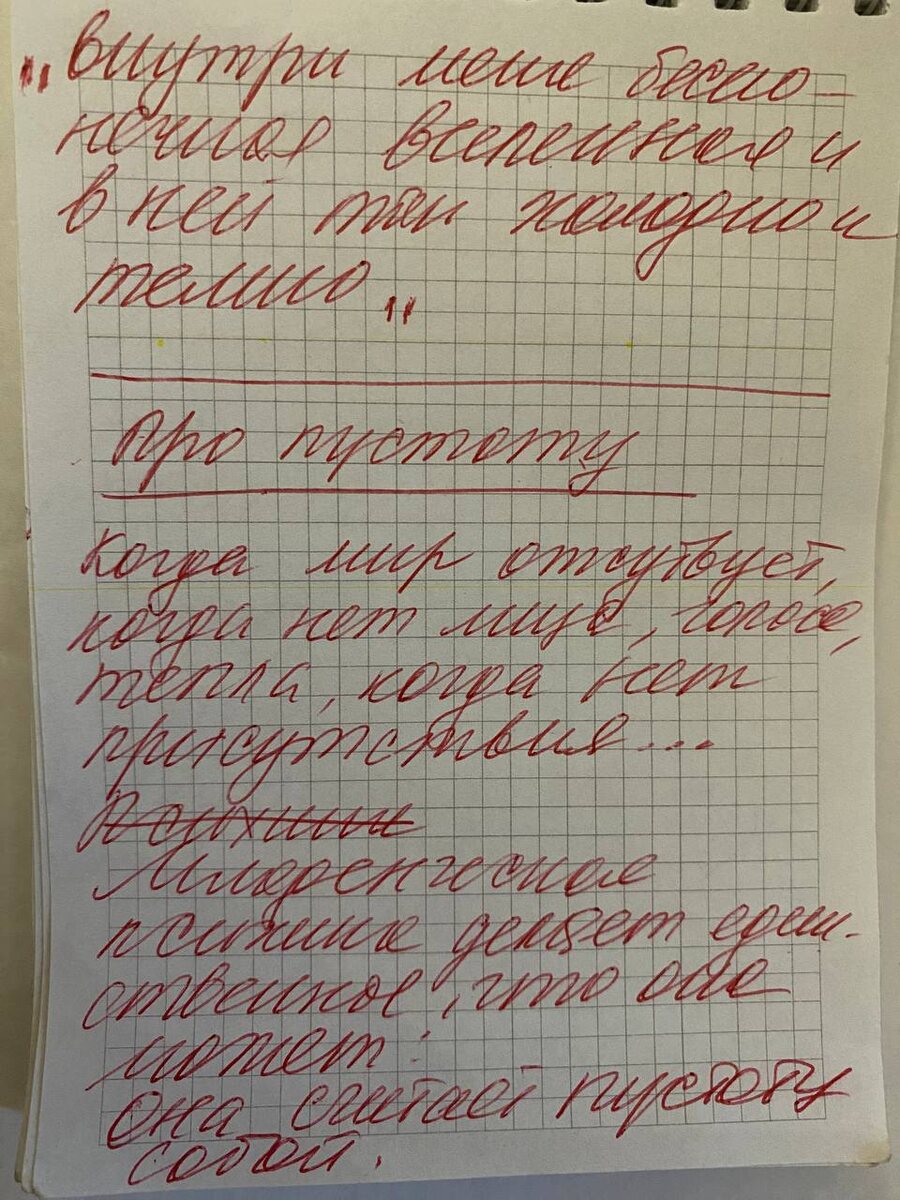 "внутри меня беско-
нечная вселенная и
в ней так холодно и
темно"
Про пустоту
когда мир отсутвует,
когда нет лица, голоса,
тепла, когда нет
присутствия...
Психик
Младенческая
психика делает един-
ственное, что она
может:
она считает пустоту
собой.